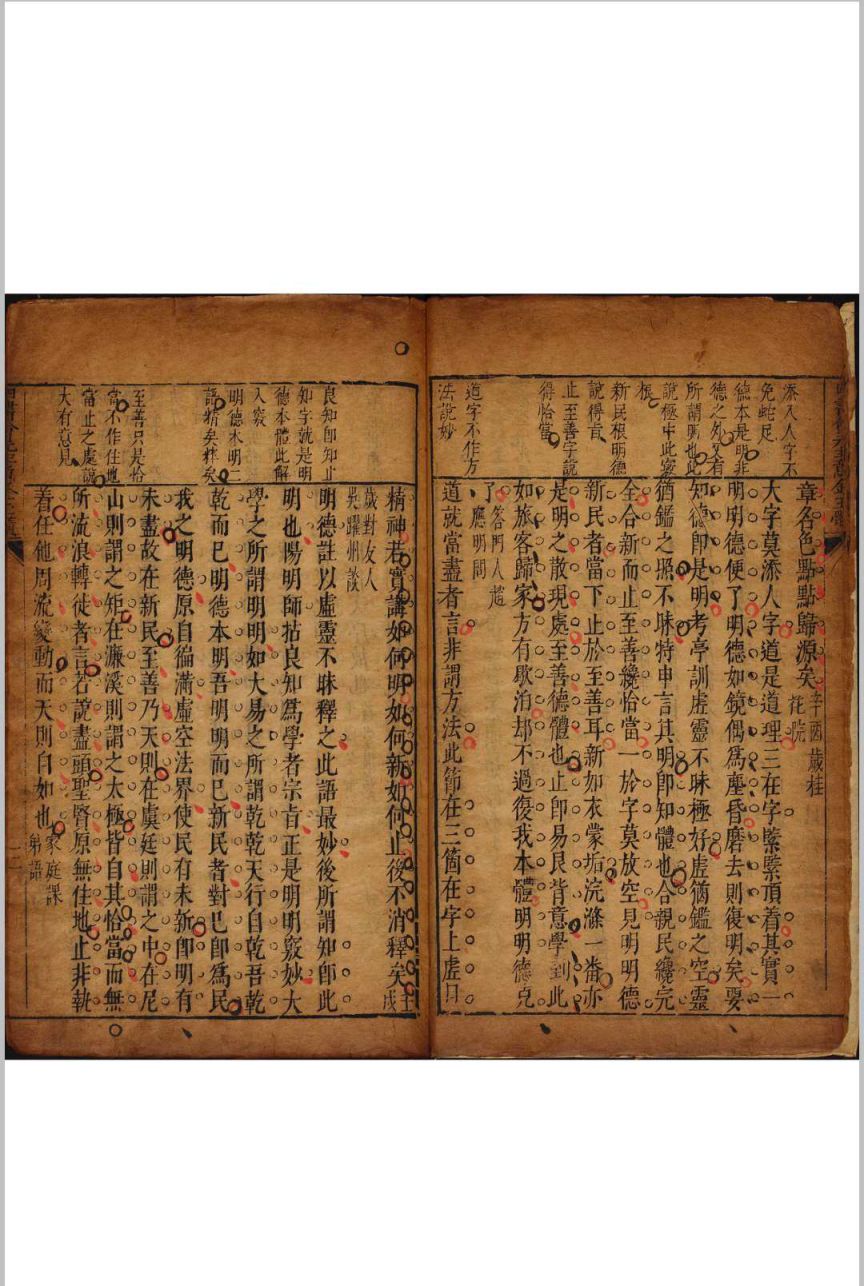 添入人字不
免蛇足
德本是明非
德之外又有
所謂明也此
說極中此竅
根
新民根明德
說得旨
止至善字說
得恰當
道字不作方
法說妙
章各色點點歸源矣辛酉歲桂花院
大字莫添人字道是道理三在字緊緊頂着其實一
明明德便了明德如鏡偶爲塵昏磨去則復明矣要
知德即是明考亭訓虛靈不昧極好虛猶鑑之空靈
猶鑑之照不昧特申言其明即知體也合親民纔完
全合新而止至善纔恰當一於字莫放空見明明德
新民者當下止於至善耳新如衣蒙垢浣滌一番亦
是明之散現處至善德體也止即易艮背意學到此
如旅客歸家方有歇泊却不過復我本體明明德克
了答門人趙應明問
道就當盡者言非謂方法此節在三箇在字上虛日
良知即知止
知字就是明
德本體此解
入竅
明德本明二
語精矣粹矣
至善只是恰
當不作住也
當止之處說
大有意見
精神若實講如何明如何新如何止後不消釋矣壬戌
歲對友人吳躍州談
明德註以虛靈不昧釋之此語最妙後所謂知即此
明也陽明師拈良知爲學者宗旨正是明明竅妙大
學之所謂明明如大易之所謂乾乾天行自乾吾乾
乾而已明德本明吾明明而已新民者對己即爲民
我之明德原自徧滿虛空法界使民有未新即明有
未盡故在新民至善乃天則在虞廷則謂之中在尼
山則謂之矩在濂溪則謂之太極皆自其恰當而無
所流浪轉徙者言若說盡頭聖脩原無住地止非執
着任他周流變動而天則自如也家庭課弟語